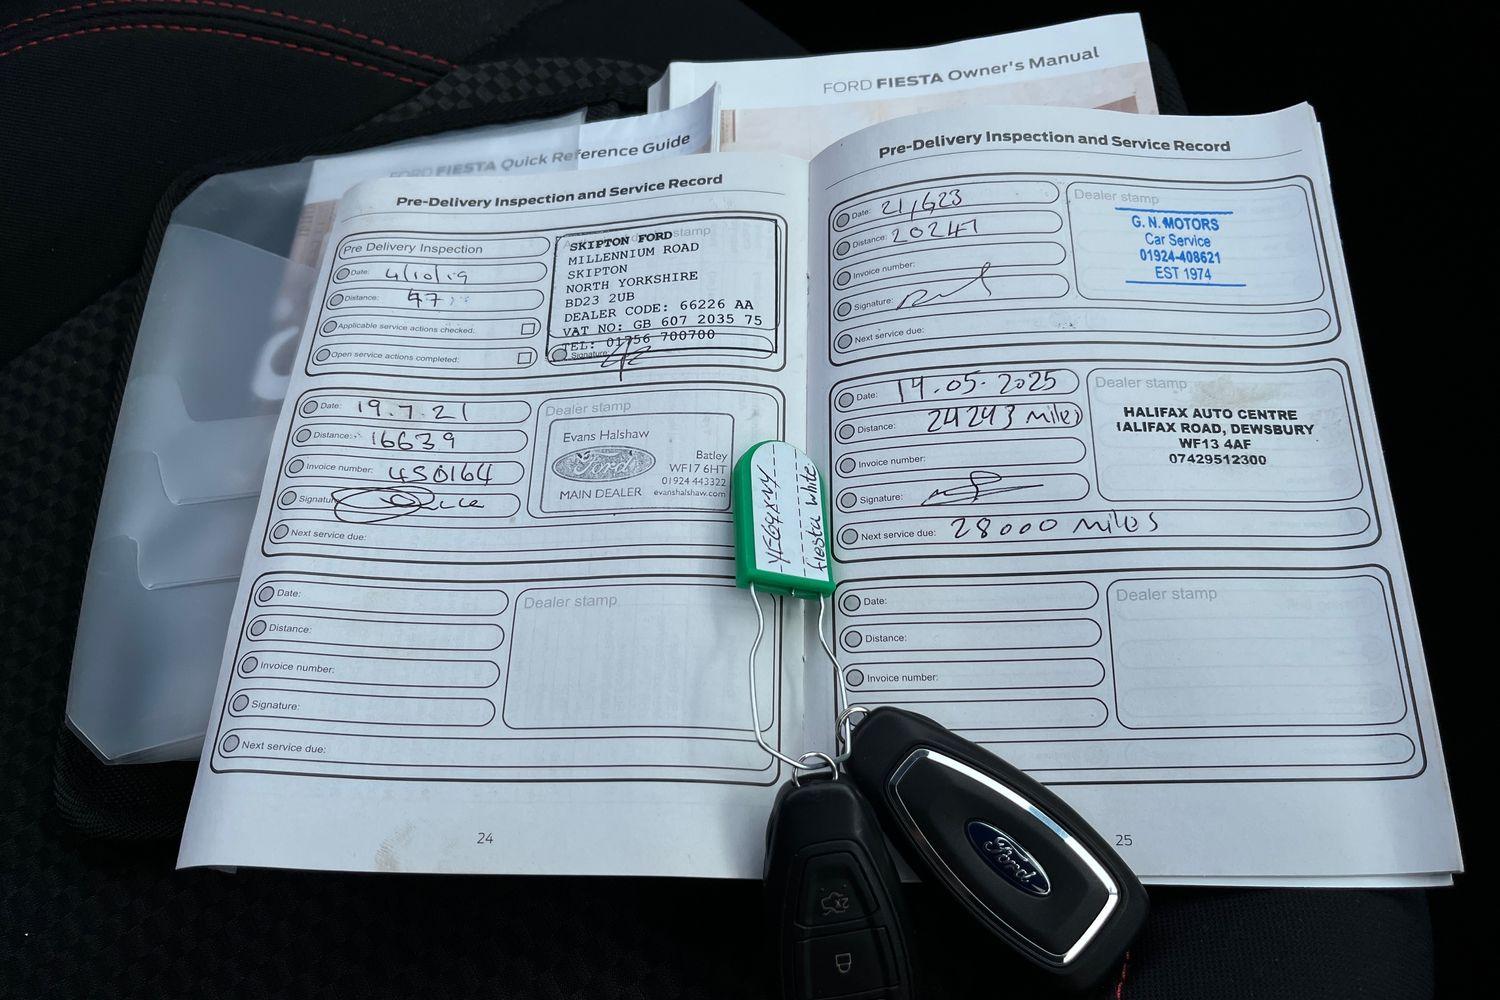 FORD FIESTA Owner's Manual
FORD FIESTA Quick Reference Guide
Pre-Delivery Inspection and Service Record
Pre Delivery Inspection
Date: 4/10/19
Distance: 47
Applicable service actions checked:
Open service actions completed:
stamp
SKIPTON FORD
MILLENNIUM ROAD
SKIPTON
NORTH YORKSHIRE
BD23 2UB
DEALER CODE: 66226 AA
VAT NO: GB 607 2035 75
TEL: 01756 700700
Signature:
Date: 19.7.21
Distance: 16639
Invoice number:
Signature:
Next service due:
Dealer stamp
Evans Halshaw
Ford
MAIN DEALER
Batley
WF17 6HT
01924 443322
evanshalshaw.com
Date:
Distance:
Invoice number:
Signature:
Next service due:
Dealer stamp
24
Pre-Delivery Inspection and Service Record
Date: 21/623
Distance: 20247
Invoice number:
Signature:
Next service due:
Dealer stamp
G. N. MOTORS
Car Service
01924-408621
EST 1974
Date: 19.05.2025
Distance: 24243 miles
Invoice number:
Signature:
Next service due: 28000 miles
Dealer stamp
HALIFAX AUTO CENTRE
HALIFAX ROAD, DEWSBURY
WF13 4AF
07429512300
Date:
Distance:
Invoice number:
Dealer stamp
25
fiesta white
Ford